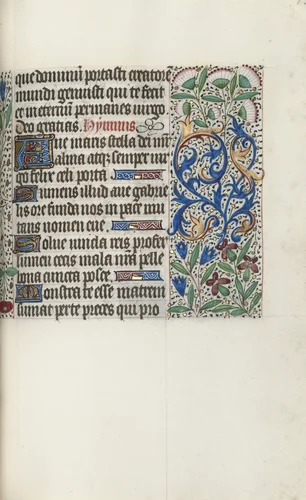 que dominū portasti creatorē
mundi genuisti qui te fecit
et in eternū permanes virgo
Deo gratias. Hymnus
Aue maris stella dei mr̄
alma atq̄ semper vir
go felix celi porta
Sumens illud aue gabrie
lis ore funda nos in pace mu
tans nomen eue.
Solue vincla reis profer
lumen cecis mala nr̄a pelle
bona cuncta posce.
Monstra te esse matrem
sumat per te preces qui pro